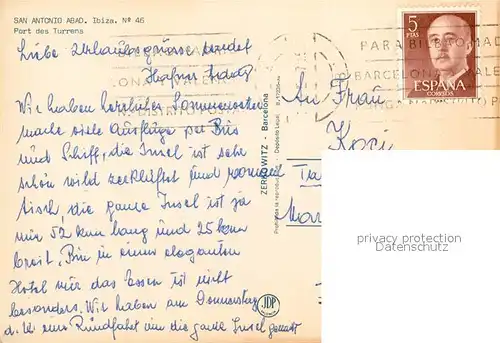 SAN ANTONIO ABAD. Ibiza. Nº 46
Port des Turrens
Liebe Urlaubsgrüsse sendet
Hafner
Wir haben herrliches Sommerwetter
mache viele Ausflüge per Bus
und Schiff, die Insel ist sehr
schön wild zerklüftet und roman
tisch, die ganze Insel ist ja
nur 52 km lang und 25 km
breit. Bin in einem eleganten
Hotel nur das Essen ist nicht
besonders. Wir haben am Donnerstag
d. M eine Rundfahrt um die ganze Insel gemacht
ZERKOWITZ - Barcelona
Prohibida la reproducción - Depósito Legal
JDP
An Frau
Kopi
Ta
Mar
5
PTAS
ESPAÑA
CORREOS
PARA BILBAO MAD
BARCELONA VALE
privacy protection
Datenschutz